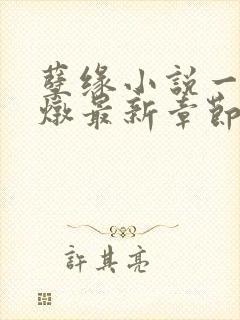 孽缘小說一
燉最新章節
許其亮